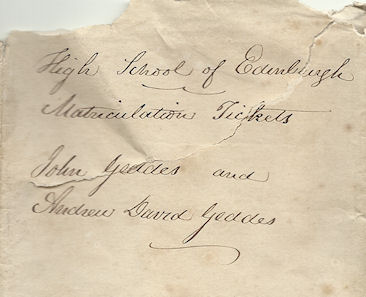 High School of Edinburgh
Matriculation Tickets
John Geddes and
Andrew David Geddes